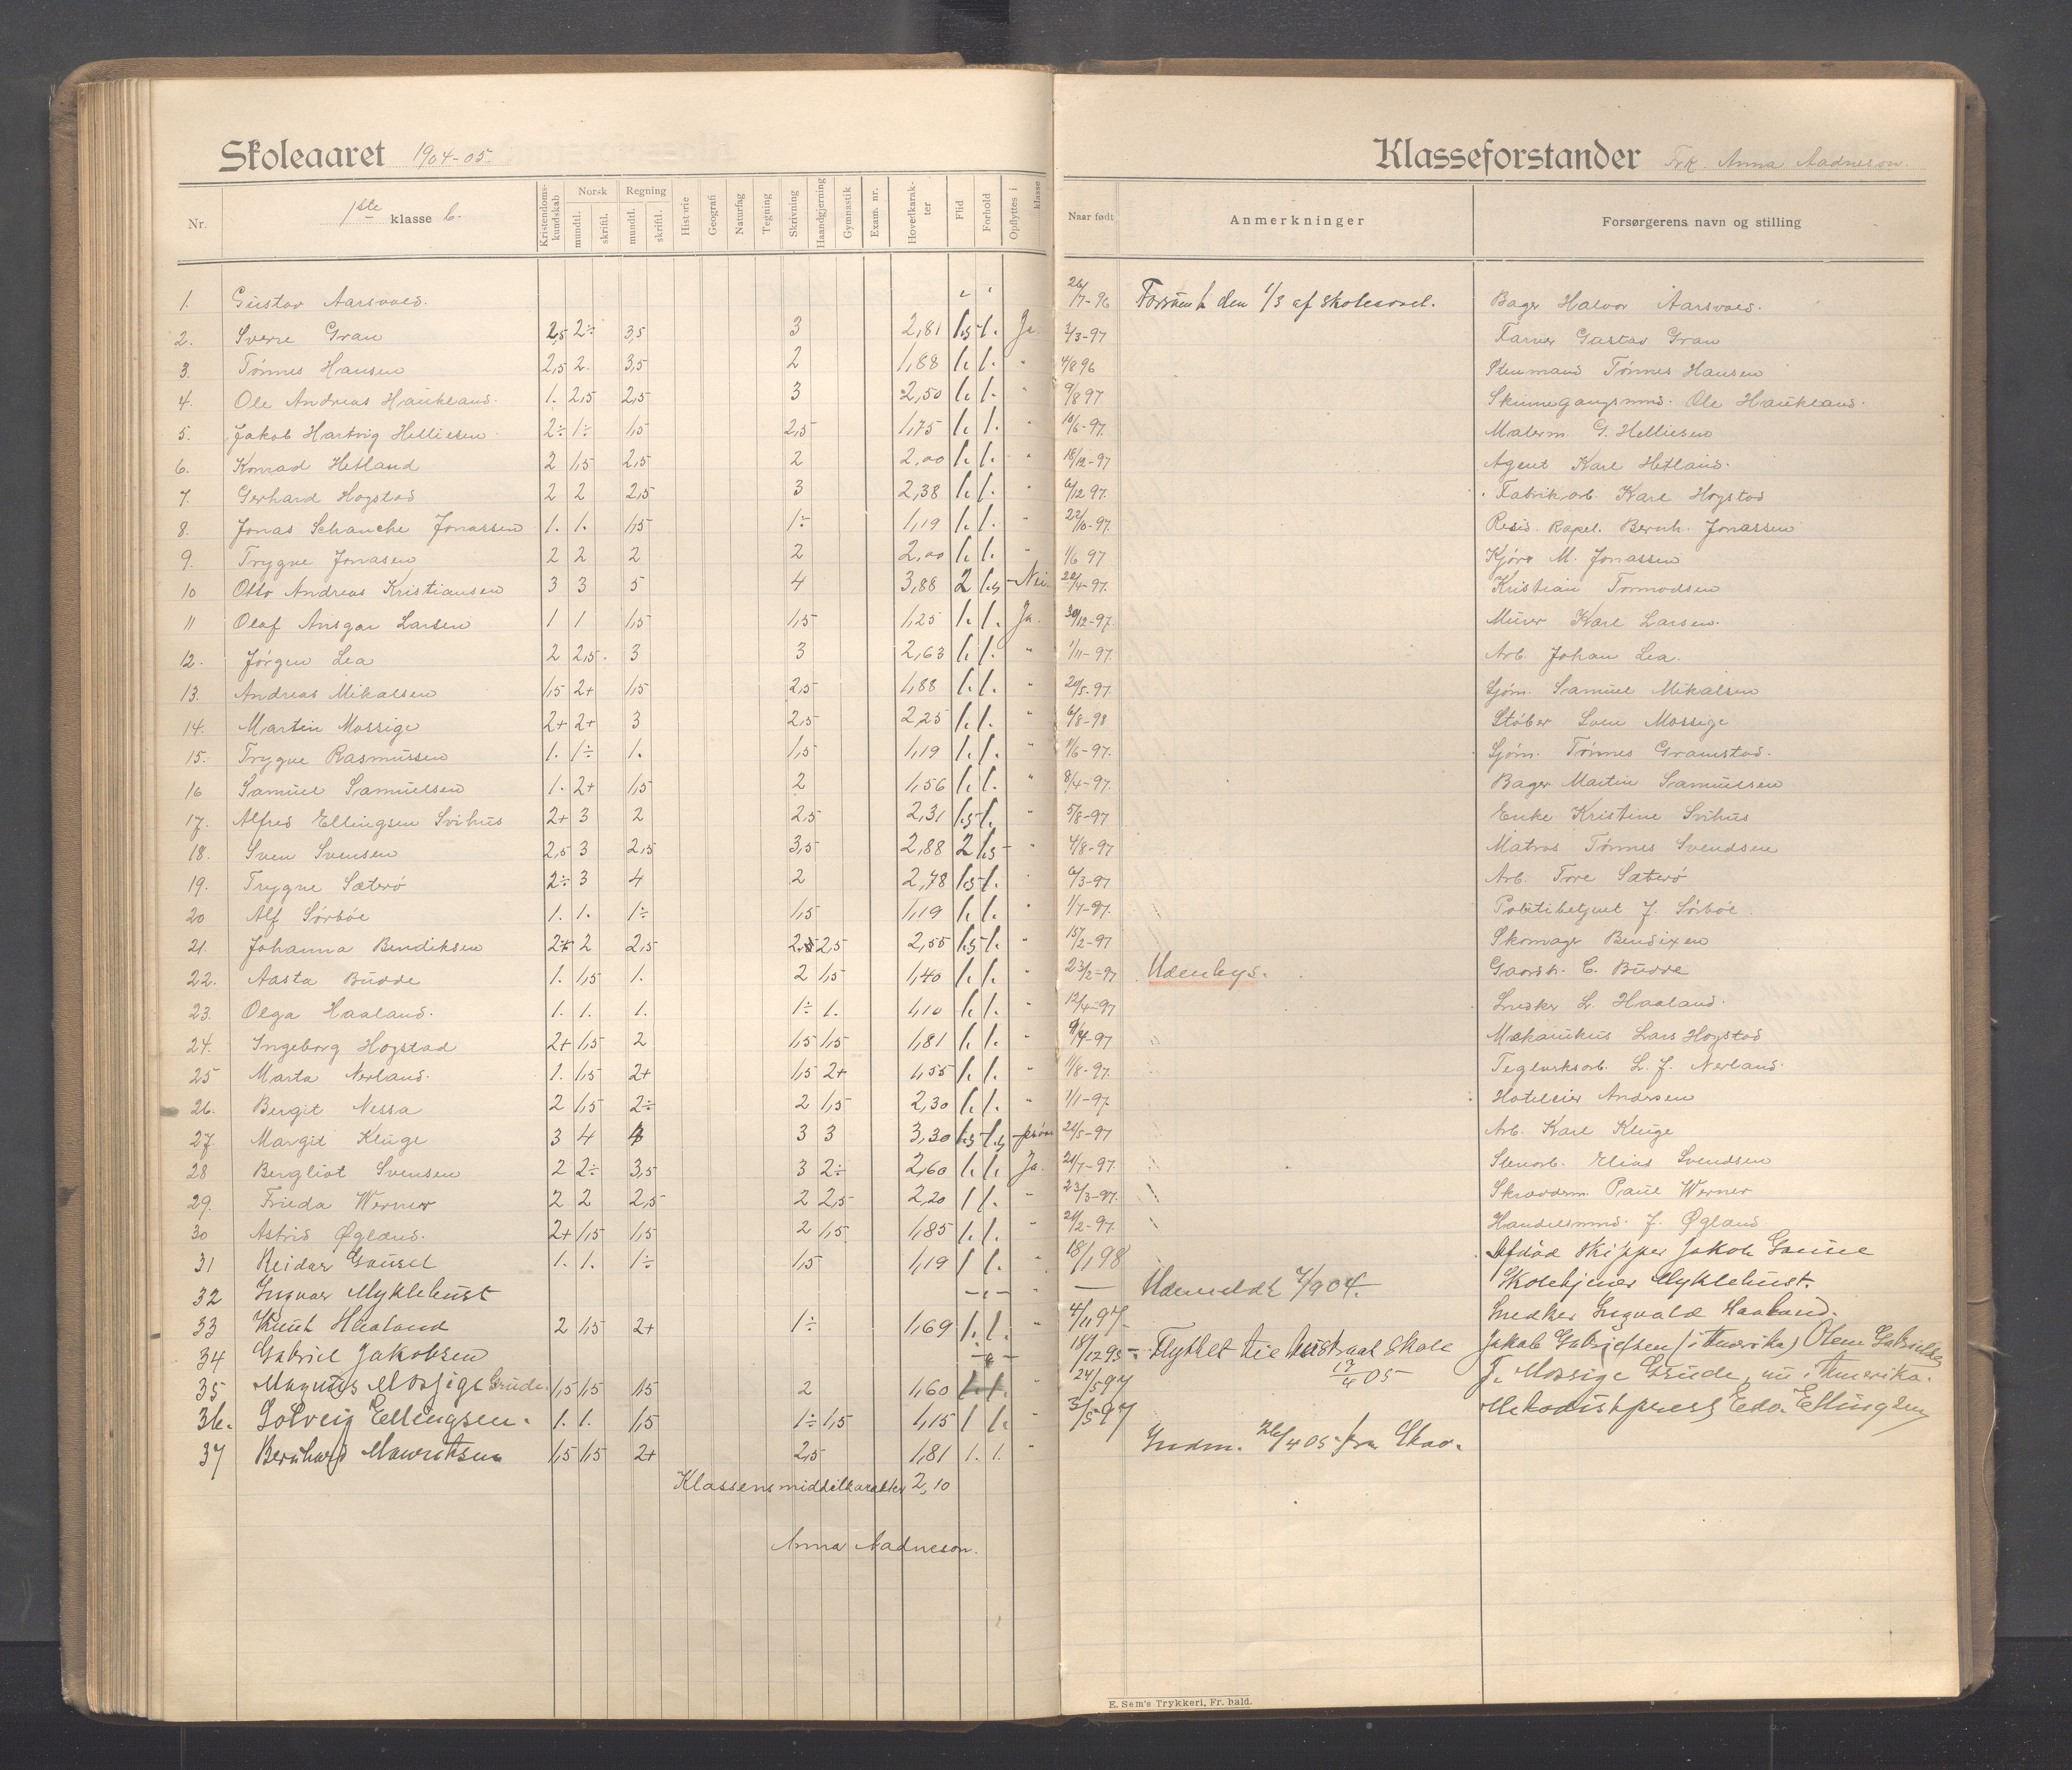 Skoleaaret 1904-05.
Nr. 1ste klasse b. Kristendomskundskab Norsk mundtl. skriftl. Regning mundtl. skriftl. Historie Geografi Naturfag Tegning Skrivning Haandgjerning Gymnastik Exam. nr. Hovedkarakter Flid Forhold Opflyttes i klasse
1. Gustav Aarsvold.
2. Sverre Gran 2,5 2÷ 3,5 3 2,81 1,5 1. Ja.
3. Tønnes Hansen 2,5 2. 3,5 2 1,88 1. 1. "
4. Ole Andreas Haukland. 1. 2,5 2,5 3 2,50 1. 1. "
5. Jakob Hartvig Helliesen 2÷ 1÷ 1,5 2,5 1,75 1. 1. "
6. Konrad Hetland 2 1,5 2,5 2 2,00 1. 1. "
7. Gerhard Hogstad 2 2 2,5 3 2,38 1. 1. "
8. Jonas Schanche Jonassen 1. 1. 1,5 1÷ 1,19 1. 1. "
9. Trygve Jonasen 2 2 2 2 2,00 1. 1. "
10 Otto Andreas Kristiansen 3 3 5 4 3,88 2 1,5 Nei.
11 Olaf Ansgar Larsen 1 1 1,5 1,5 1,25 1. 1. Ja.
12. Jørgen Lea 2 2,5. 3 3 2,63 1. 1. "
13. Andreas Mikalsen 1,5 2+ 1,5 2,5 1,88 1. 1. "
14. Martin Mossige 2+ 2+ 3 2,5 2,25 1. 1. "
15. Trygve Rasmussen 1. 1÷ 1. 1,5 1,19 1. 1. "
16 Samuel Samuelsen 1. 2+ 1,5 2 1,56 1. 1. "
17. Alfred Ellingsen Svihus 2+ 3 2 2,5 2,31 1,5 1. "
18. Sven Svensen 2,5 3 2,5 3,5 2,88 2 1,5 "
19. Trygve Sæterø 2÷ 3 4 2 2,78 1,5 1. "
20 Alf Sørbøe 1. 1. 1÷ 1,5 1,19 1. 1. "
21. Johanna Bendiksen 2+ 2 2,5 2,5 2,5 2,55 1,5 1. "
22. Aasta Budde 1. 1,5 1. 2 1,5 1,40 1. 1. "
23. Olga Haaland. 1. 1. 1. 1÷ 1. 1,10 1. 1. "
24. Ingeborg Hogstad 2+ 1,5 2 1,5 1,5 1,81 1. 1. "
25 Marta Nerland. 1. 1,5 2+ 1,5 2+ 1,55 1. 1. "
26. Bergit Nessa 2 1,5 2÷ 2 1,5 2,30 1. 1. "
27 Margit Kluge 3 4 4 3 3 3,30 1,5 1,5 prøve
28 Bergliot Svensen 2 2÷ 3,5 3 2÷ 2,60 1. 1. Ja.
29. Frieda Werner 2 2 2,5 2 2,5 2,20 1 1. "
30 Astrid Øgland. 2+ 1,5 1,5 2 1,5 1,85 1. 1. "
31 Reidar Gausel 1. 1. 1÷ 1,5 1,19 1 1. "
32 Ingvar Myklebust "
33 Knut Haaland 2 1,5 2+ 1÷ 1,69 1. 1. "
34 Gabriel Jakobsen
35 Magnus Mossige Grude. 1,5 1,5 1,5 2 1,60 1. 1. "
36. Solveig Ellingsen. 1. 1. 1,5 1÷ 1,5 1,15 1 1. "
37 Bernhard Mauritsen 1,5 1,5 2+ 2,5 1,81 1. 1. "
Klassens middelkarakter 2,10
Anna Aadneson.
Klasseforstander Frk. Anna Aadneson.
Naar født Anmerkninger Forsørgerens navn og stilling
26/7-96 Forsømt den 1/3 af skoleaaret. Bager Halvor Aarsvold.
3/3-97 Farver Gustav Gran
4/8 96 Stenmand Tønnes Hansen
9/8 97 Ole Haukland.
10/6-97. Malerm. G. Helliesen
18/12-97 Agent Karl Hetland.
6/12 97. Fabrikarb. Karl Hogstad
22/10-97. Resid. Kapel. Bernh. Jonassen
1/6 97 M. Jonassen
20/4-97. Kristian Tormodsen
30/12-97. Murer Karl Larsen.
1/11-97. Arb. Johan Lea.
20/5-97. Sjøm. Samuel Mikalsen
6/8-98 Støber Sven Mossige
1/6-97. Sjøm. Tønnes Gramstad.
8/4-97. Bager Martin Samuelsen
5/8-97 Enke Kristine Svihus
4/8-97 Matros Tønnes Svendsen
6/3-97 Arb. Tore Sæterø
1/7-97. Politibetjent J. Sørbøe
15/2-97 Skomager Bendixen
23/2-97 Udenbys. Gaardbr. C. Budde
12/4-97 Snedker L. Haaland.
9/4-97 Mekanikus Lars Hogstad
11/8-97. Teglverksarb. L. J. Nerland.
1/1-97. Hoteleier Andersen
21/5-97 Arb. Karl Kluge
21/7-97. Stenarb. Elias Svendsen
23/3-97. Skrædderm. Paul Werner
21/2-97. Handelsmd. J. Øgland
18/1 98 Afdød Skipper Jakob Gausel
— Udmeldt 7/9 04. Myklebust.
4/11 97. Snedker Ingvald Haaland.
18/12 95 Flyttet til skole 17/4 05 Jakob Gabrielsen (i Amerika) Olene Gabrielsen
24/5 97 T. Mossige Grude, nu i Amerika.
3/5 97 Methodistprest Edv. Ellingsen
Indm. 26/4 05 fra
E. Sem's Trykkeri, Fr. hald.